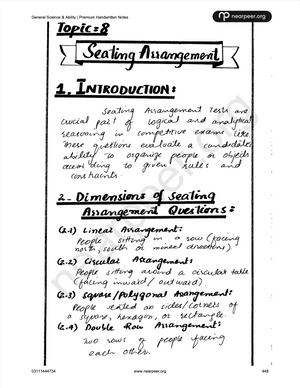 General Science & Ability | Premium Handwritten Notes
nearpeer.org
Topic=8
Seating Arrangement
1. INTRODUCTION:
Seating Arrangement Tests are
crucial part of logical and analytical
reasoning in competitive exams like
These questions evaluate a candidates
ability to organize people or objects
according to given rules and
constraints.
2- Dimensions of Seating
Arrangement Questions:
(2.1) Linear Arrangement:
People sitting in a row (facing
north, south or mixed directions)
(2.2) Circular Arrangement:
People sitting around a circular table
(facing inward / outward).
(2.3) Square/Polygonal Arrangement:
People seated on sides/corners of
a square, hexagon, or rectangle.
(2.4) Double Row Arrangement:
Two rows of people facing
each other.
nearpeer.org
03111444734
www.nearpeer.org
448